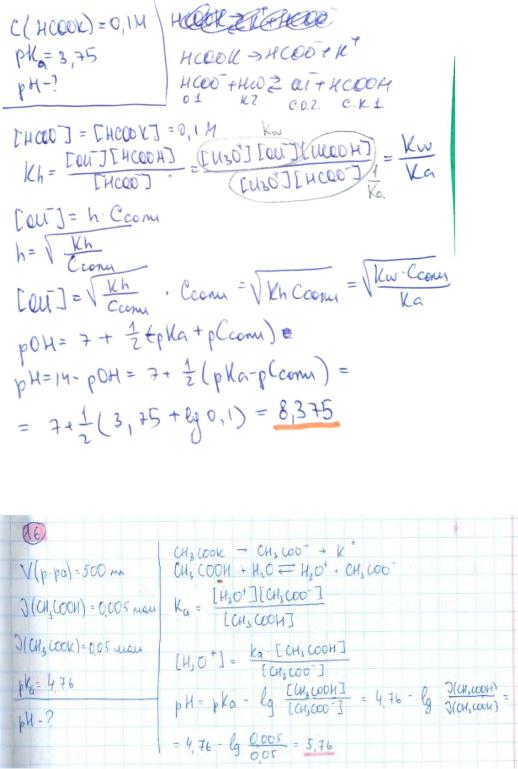 C(HCOOK)=0,1M
pKa=3,75
pH-?
HCOOK → HCOO⁻ + K⁺
HCOO⁻ + H₂O ⇄ OH⁻ + HCOOH
О1 К2 С.О.2. С.К.1
[HCOO⁻] = [HCOOK] = 0,1 M
Kh = [OH⁻][HCOOH] / [HCOO⁻] = [H₃O⁺][OH⁻][HCOOH] / [H₃O⁺][HCOO⁻] = Kw / Ka
Kw
1/Ka
[OH⁻] = h · Cсоли
h = √(Kh / Cсоли)
[OH⁻] = √(Kh / Cсоли) · Cсоли = √(Kh Cсоли) = √(Kw · Cсоли / Ka)
pOH = 7 + 1/2 (-pKa + pCсоли)
pH = 14 - pOH = 7 + 1/2 (pKa - pCсоли) =
= 7 + 1/2 (3,75 + lg 0,1) = 8,375
16
V(р-ра) = 500 мл
ν(CH₃COOH) = 0,005 моль
ν(CH₃COOK) = 0,05 моль
pKa = 4,76
pH - ?
CH₃COOK → CH₃COO⁻ + K⁺
CH₃COOH + H₂O ⇄ H₃O⁺ + CH₃COO⁻
Ka = [H₃O⁺][CH₃COO⁻] / [CH₃COOH]
[H₃O⁺] = Ka · [CH₃COOH] / [CH₃COO⁻]
pH = pKa - lg [CH₃COOH] / [CH₃COO⁻] = 4,76 - lg ν(CH₃COOH) / ν(CH₃COOK) =
= 4,76 - lg 0,005 / 0,05 = 5,76